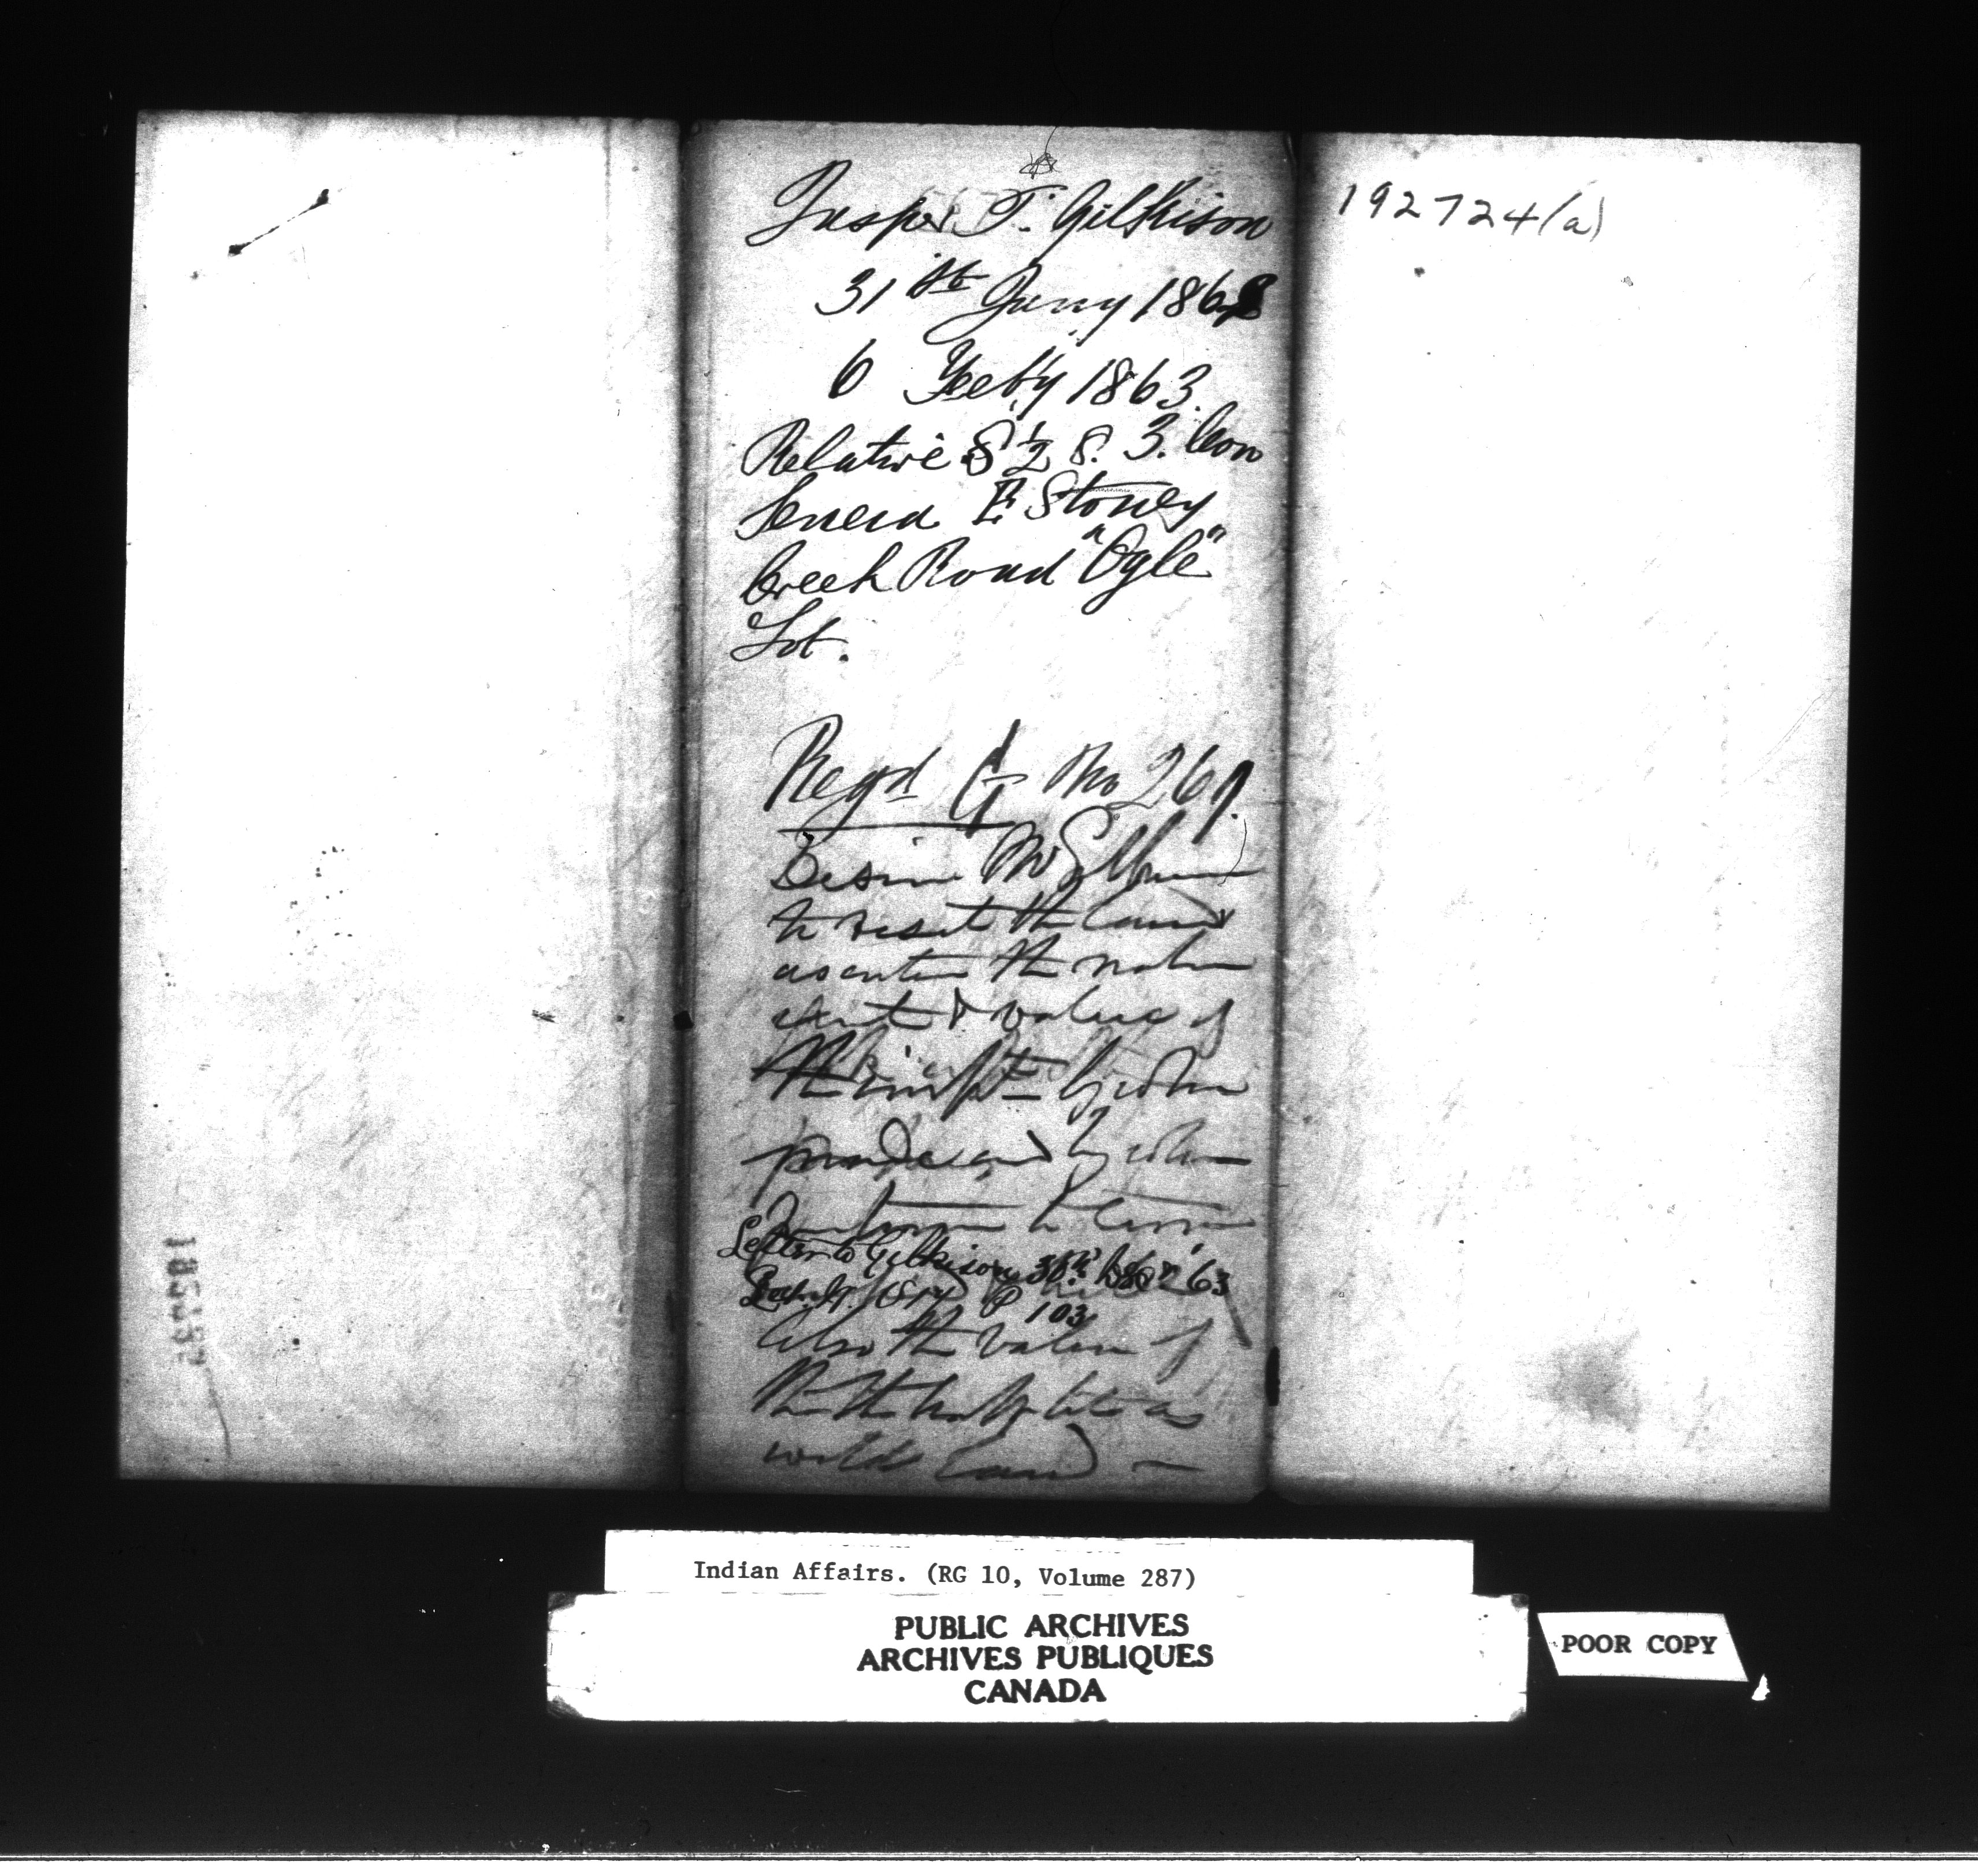 Jasper T. Gilkison
31st Jany 1863
6 Feeb'y 1863.
Relative S ½ 8. 3. Con
Seneca E Stoney
Creek Road "Ogle"
Lot.
Regd G No 269.
Desire Mr Gilkison
to visit the land
ascertain the nature
extent & value of
the impts by whom
made and by whom
Letter to Gilkison 63
P 103
Also the value of
the half lot as
wild land –
192724(a)
Indian Affairs. (RG 10, Volume 287)
PUBLIC ARCHIVES
ARCHIVES PUBLIQUES
CANADA
POOR COPY